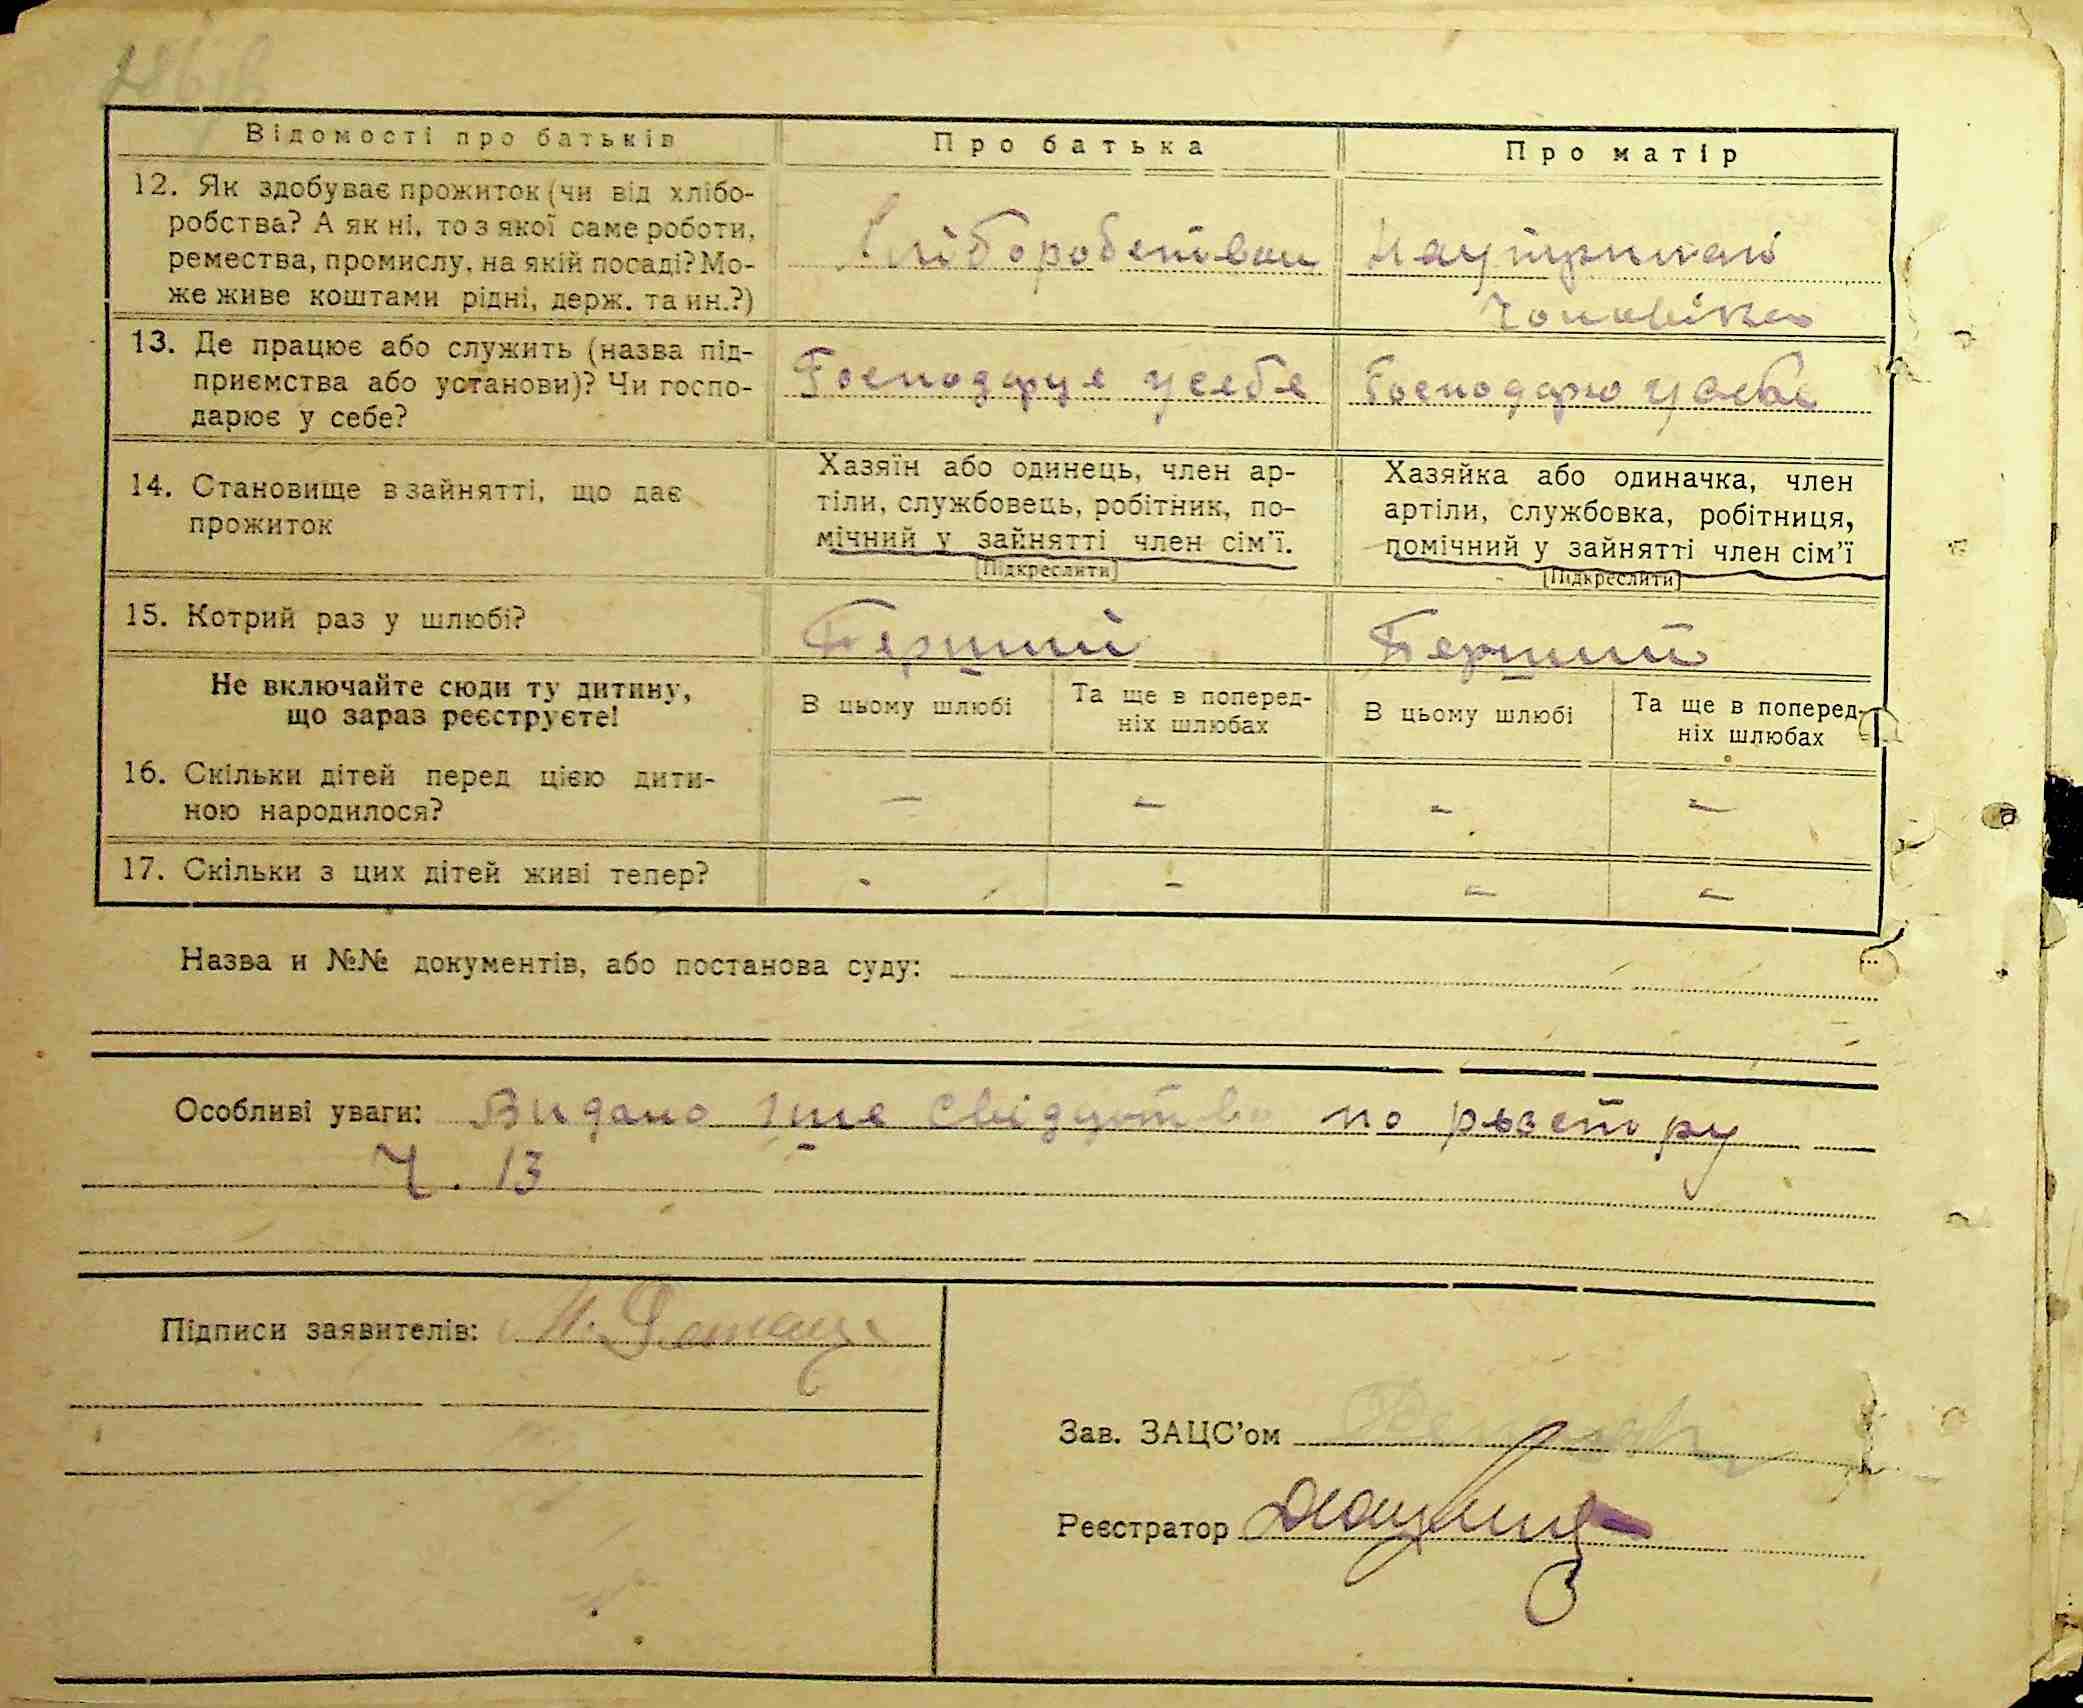 Відомості про батьків
Про батька
Про матір
12. Як здобуває прожиток (чи від хлібо-
робства? А як ні, то з якої саме роботи,
ремества, промислу, на якій посаді? Мо-
же живе коштами рідні, держ. та ин.?)
Хліборобством
На утриманні
Чоловіка
13. Де працює або служить (назва під-
приємства або установи)? Чи госпо-
дарює у себе?
Господарує у себе
Господарю у себе
14. Становище в зайнятті, що дає
прожиток
Хазяїн або одинець, член ар-
тіли, службовець, робітник, по-
мічний у зайнятті член сім'ї.
(Підкреслити)
Хазяйка або одиначка, член
артіли, службовка, робітниця,
помічний у зайнятті член сім'ї
(Підкреслити)
15. Котрий раз у шлюбі?
Перший
Перший
Не включайте сюди ту дитину,
що зараз реєструєте!
В цьому шлюбі
Та ще в поперед-
ніх шлюбах
В цьому шлюбі
Та ще в поперед-
ніх шлюбах
16. Скільки дітей перед цією дити-
ною народилося?
– – – –
17. Скільки з цих дітей живі тепер?
- - – –
Назва и №№ документів, або постанова суду:
Особливі уваги: Видано Свідоцтво по рьэстру
Ч. 13
Підписи заявителів:
Зав. ЗАЦС'ом
Реєстратор